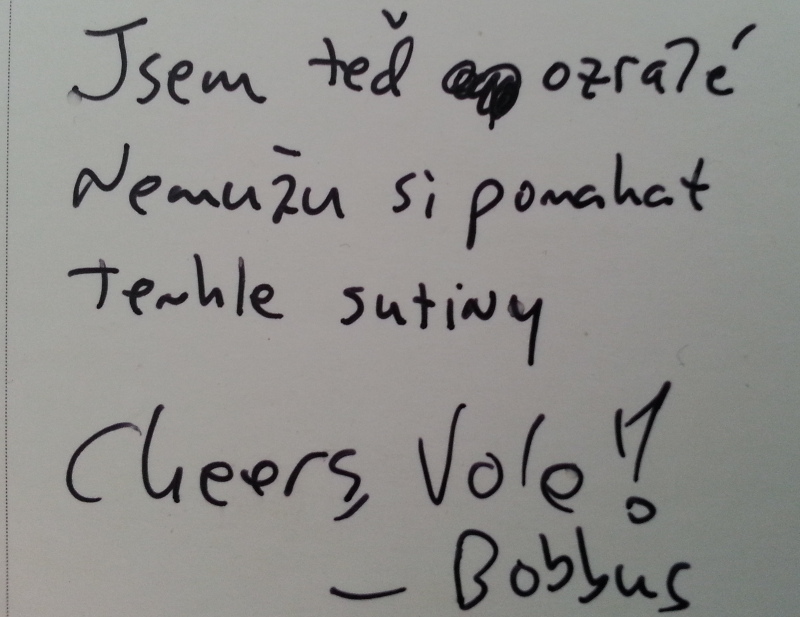 Jsem teď ozralé
Nemužu si pomahat
Tenhle sutiny
Cheers, Vole!
— Bobbus